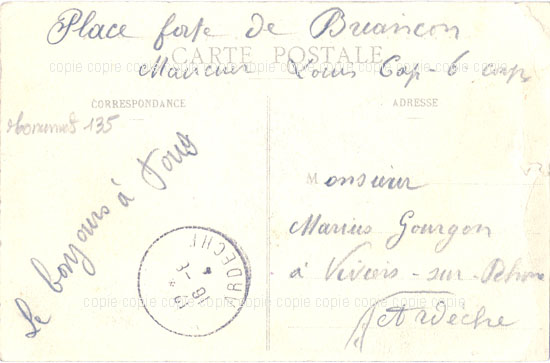 Place forte de Briancon
CARTE POSTALE
Louis Cap - 6
copie copie copie copie copie copie copie copie copie
CORRESPONDANCE
ADRESSE
135
Le bonjours à tous
Monsieur
Marius Gourgon
à Viviers-sur-Rhone
Ardèche
ARDECHE
copie copie copie copie copie copie copie copie copie